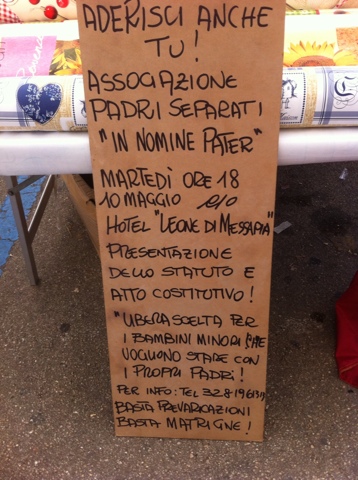 ADERISCI ANCHE
TU!
ASSOCIAZIONE
PADRI SEPARATI
"IN NOMINE PATER"
MARTEDÌ ORE 18
10 MAGGIO
HOTEL "LEONE DI MESSAPIA"
PRESENTAZIONE
DELLO STATUTO E
ATTO COSTITUTIVO!
"LIBERA SCELTA PER
I BAMBINI MINORI CHE
VOGLIONO STARE CON
I PROPRI PADRI!
PER INFO: TEL
BASTA PREVARICAZIONI
BASTA MATRIGNE!